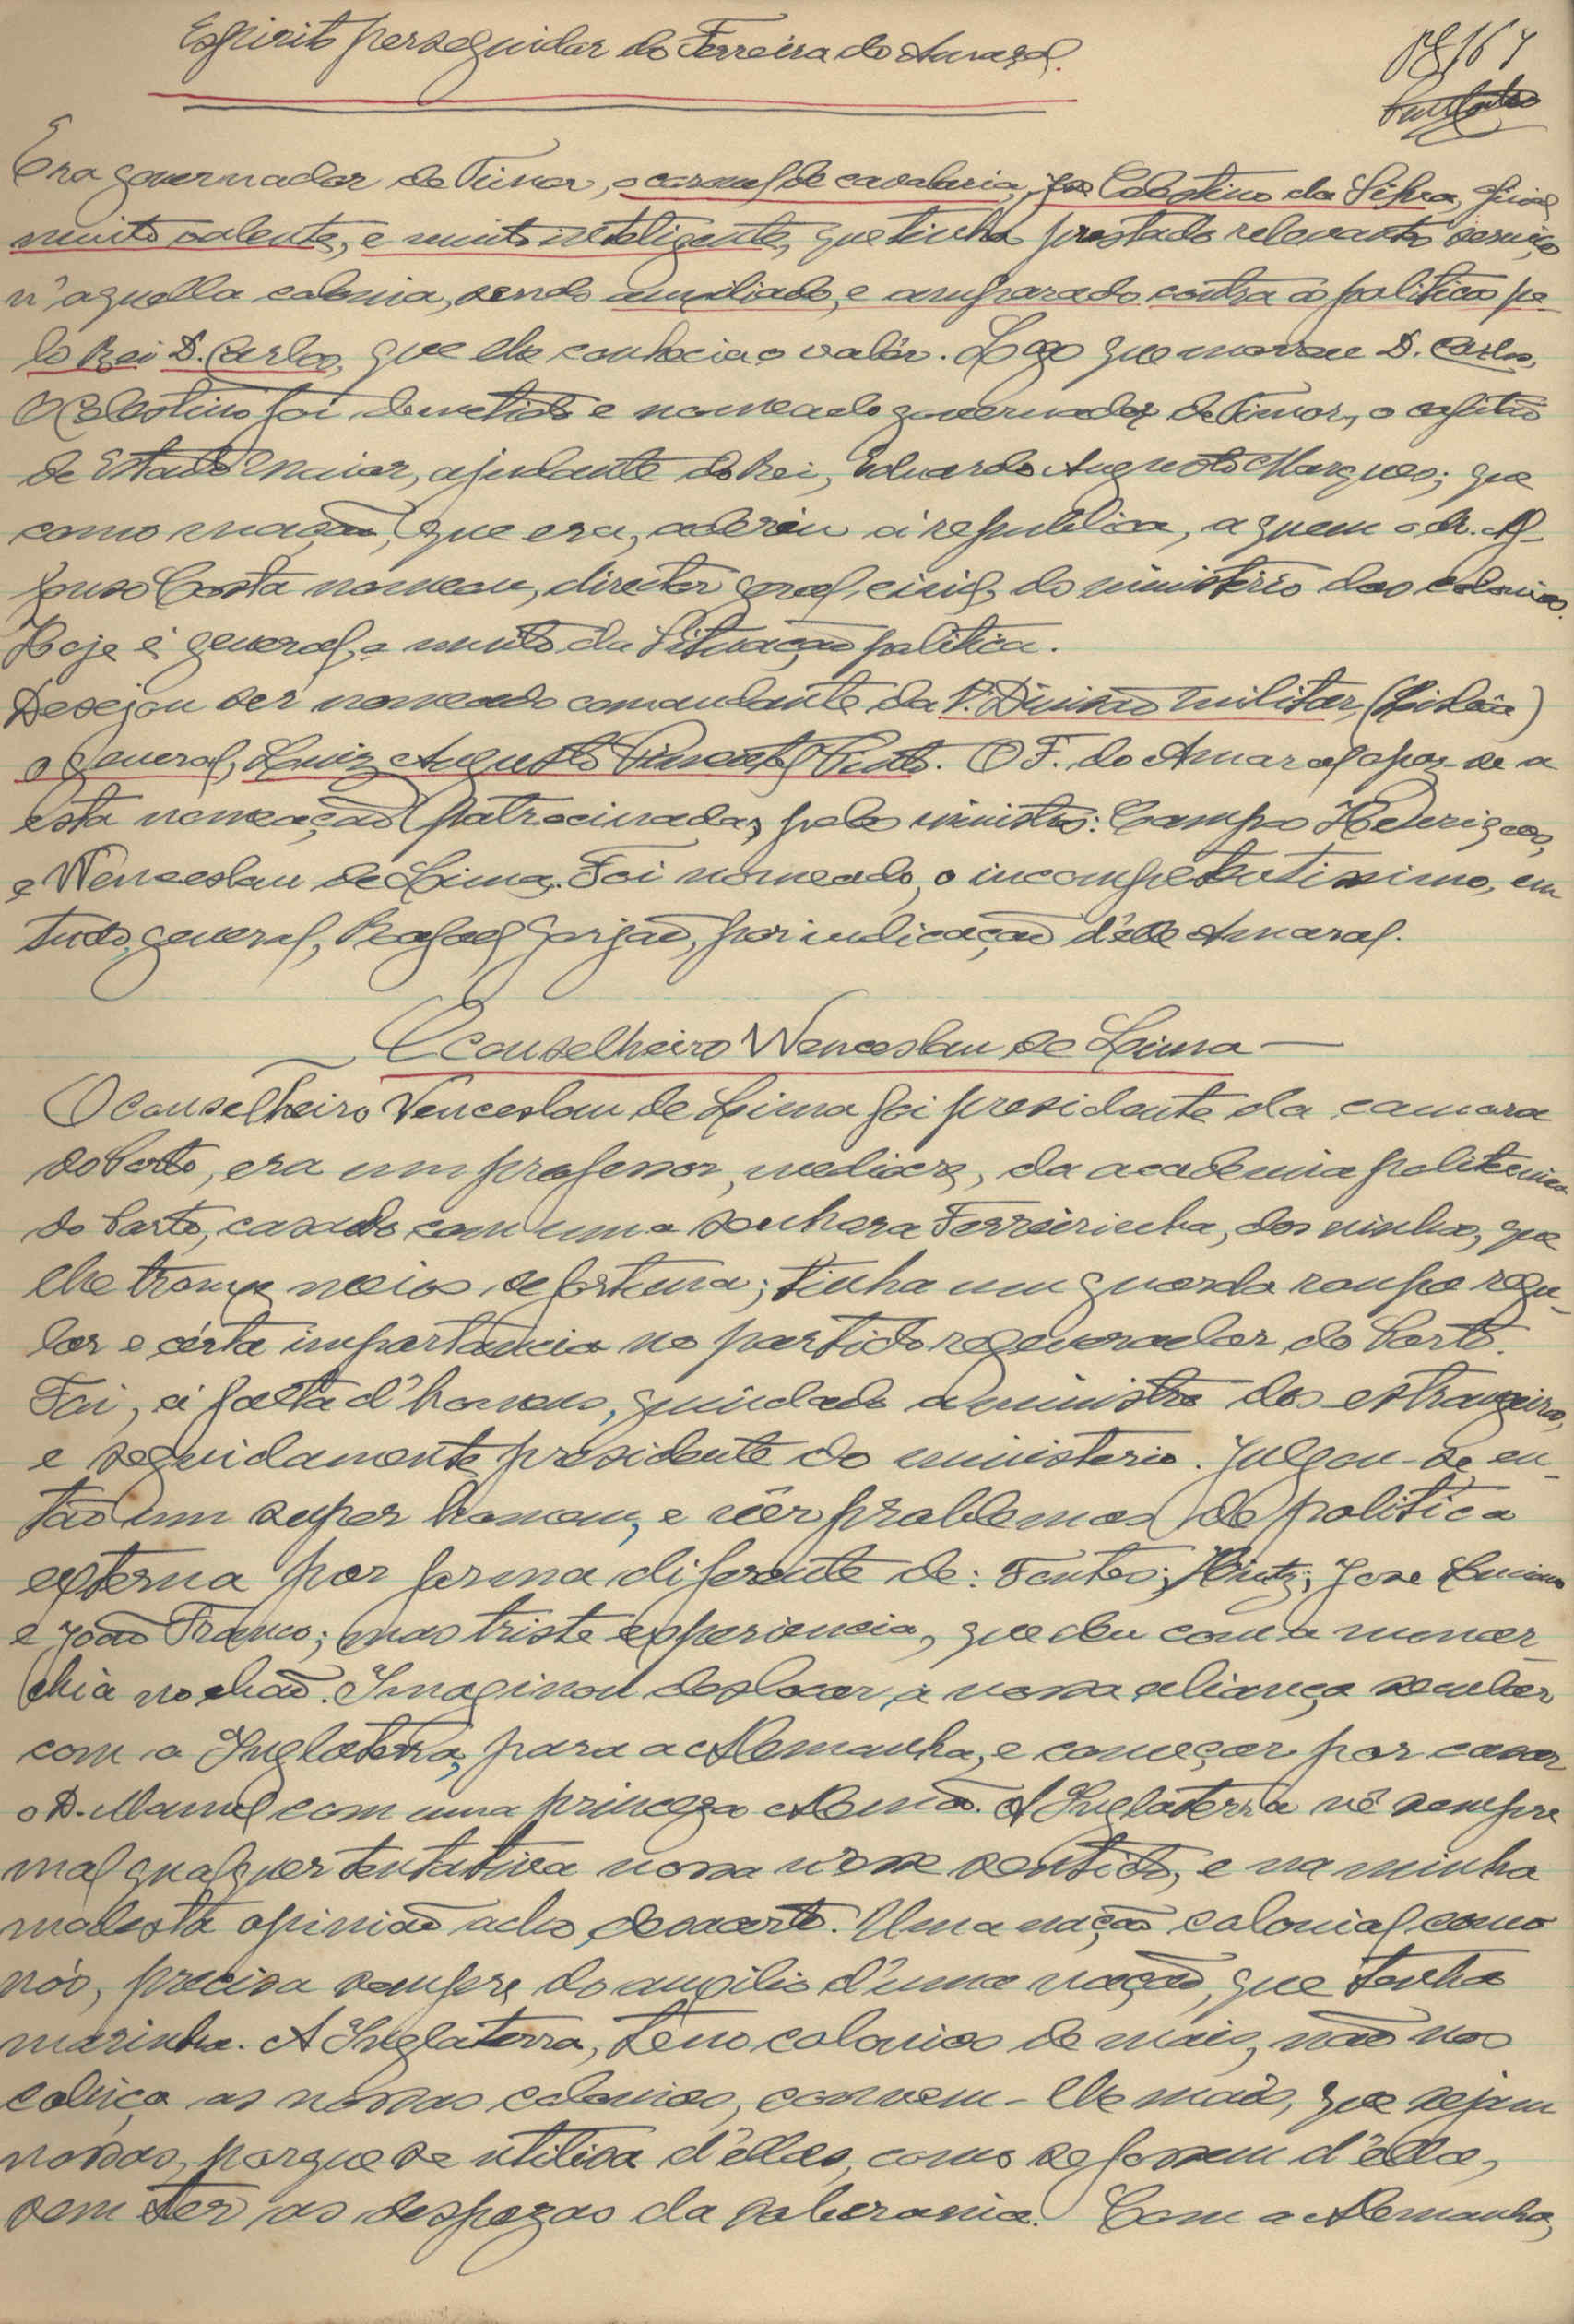 Espirito perseguidor do Ferreira do Amaral.
pg 167
Era governador de Timor, o coronel de cavalaria, José Celestino da Silva, oficial
muito valente, e muito inteligente, que tinha prestado relevantes serviços
n'aquella colonia, sendo auxiliado, e amparado contra a politica pe-
lo Rei D. Carlos, que lhe conhecia o valôr. Logo que morreu D. Carlos,
o Celestino foi demetido e nomeado governador de Timor, o capitão
de Estado Maior, ajudante do Rei, Eduardo Augusto Marques; que
como maçao, que era, aderiu á republica, a quem o dr. Af-
fonso Costa nomeou, director geral, civil, do ministério das colonias.
Hoje é general, e muito da Situação politica.
Desejou ser nomeado comandante da 1ª Divisão militar, (Lisbôa)
o general, Luiz Augusto Pimentel Pinto. O F. do Amaral opoz-se a
esta nomeação patrocinada, pelos ministros: Campos Henriques,
e Wenceslau de Lima. Foi nomeado, o incompetentissimo, em
tudo, general, Rafael Gorjão, por indicação d'elle Amaral.
O conselheiro Wenceslau de Lima —
O conselheiro Venceslau de Lima foi presidente da camara
do Porto, era um professor, mediocre, da academia politecnica
do Porto, casado com uma senhora Ferreirinha, dos vinhos, que
lhe trouxe meios de fortuna; tinha um guarda roupa regu-
lar e cérta importancia no partido regenerador do Porto.
Foi, á falta d'homens, guindado a ministro dos estrangeiros,
e seguidamente presidente do ministerio. Julgou-se en-
tão um super homem, e vêr problemas de politica
externa por forma diferente de: Fontes; Hintze; Jose Luciano
e João Franco; mas triste experiencia, que deu com a monar-
chia no chão. Imaginou deslocar a nossa aliança secular
com a Inglaterra, para a Alemanha, e começar por casar
o D. Manuel com uma princeza Alemã. A Inglaterra vê sempre
mal qualquer tentativa nossa n'esse sentido, e na minha
modesta opinião acho, desacerto. Uma nação colonial como
nós, precisa sempre do auxilio d'uma nação, que tenha
marinha. A Inglaterra, tem colonias de mais, não nos
cobiça as nossas colonias, convem-lhe mais, que sejam
nossas, porque se utilisa d'ellas, como se fossem d'ella,
sem ter as despezas da soberania. Com a Alemanha,